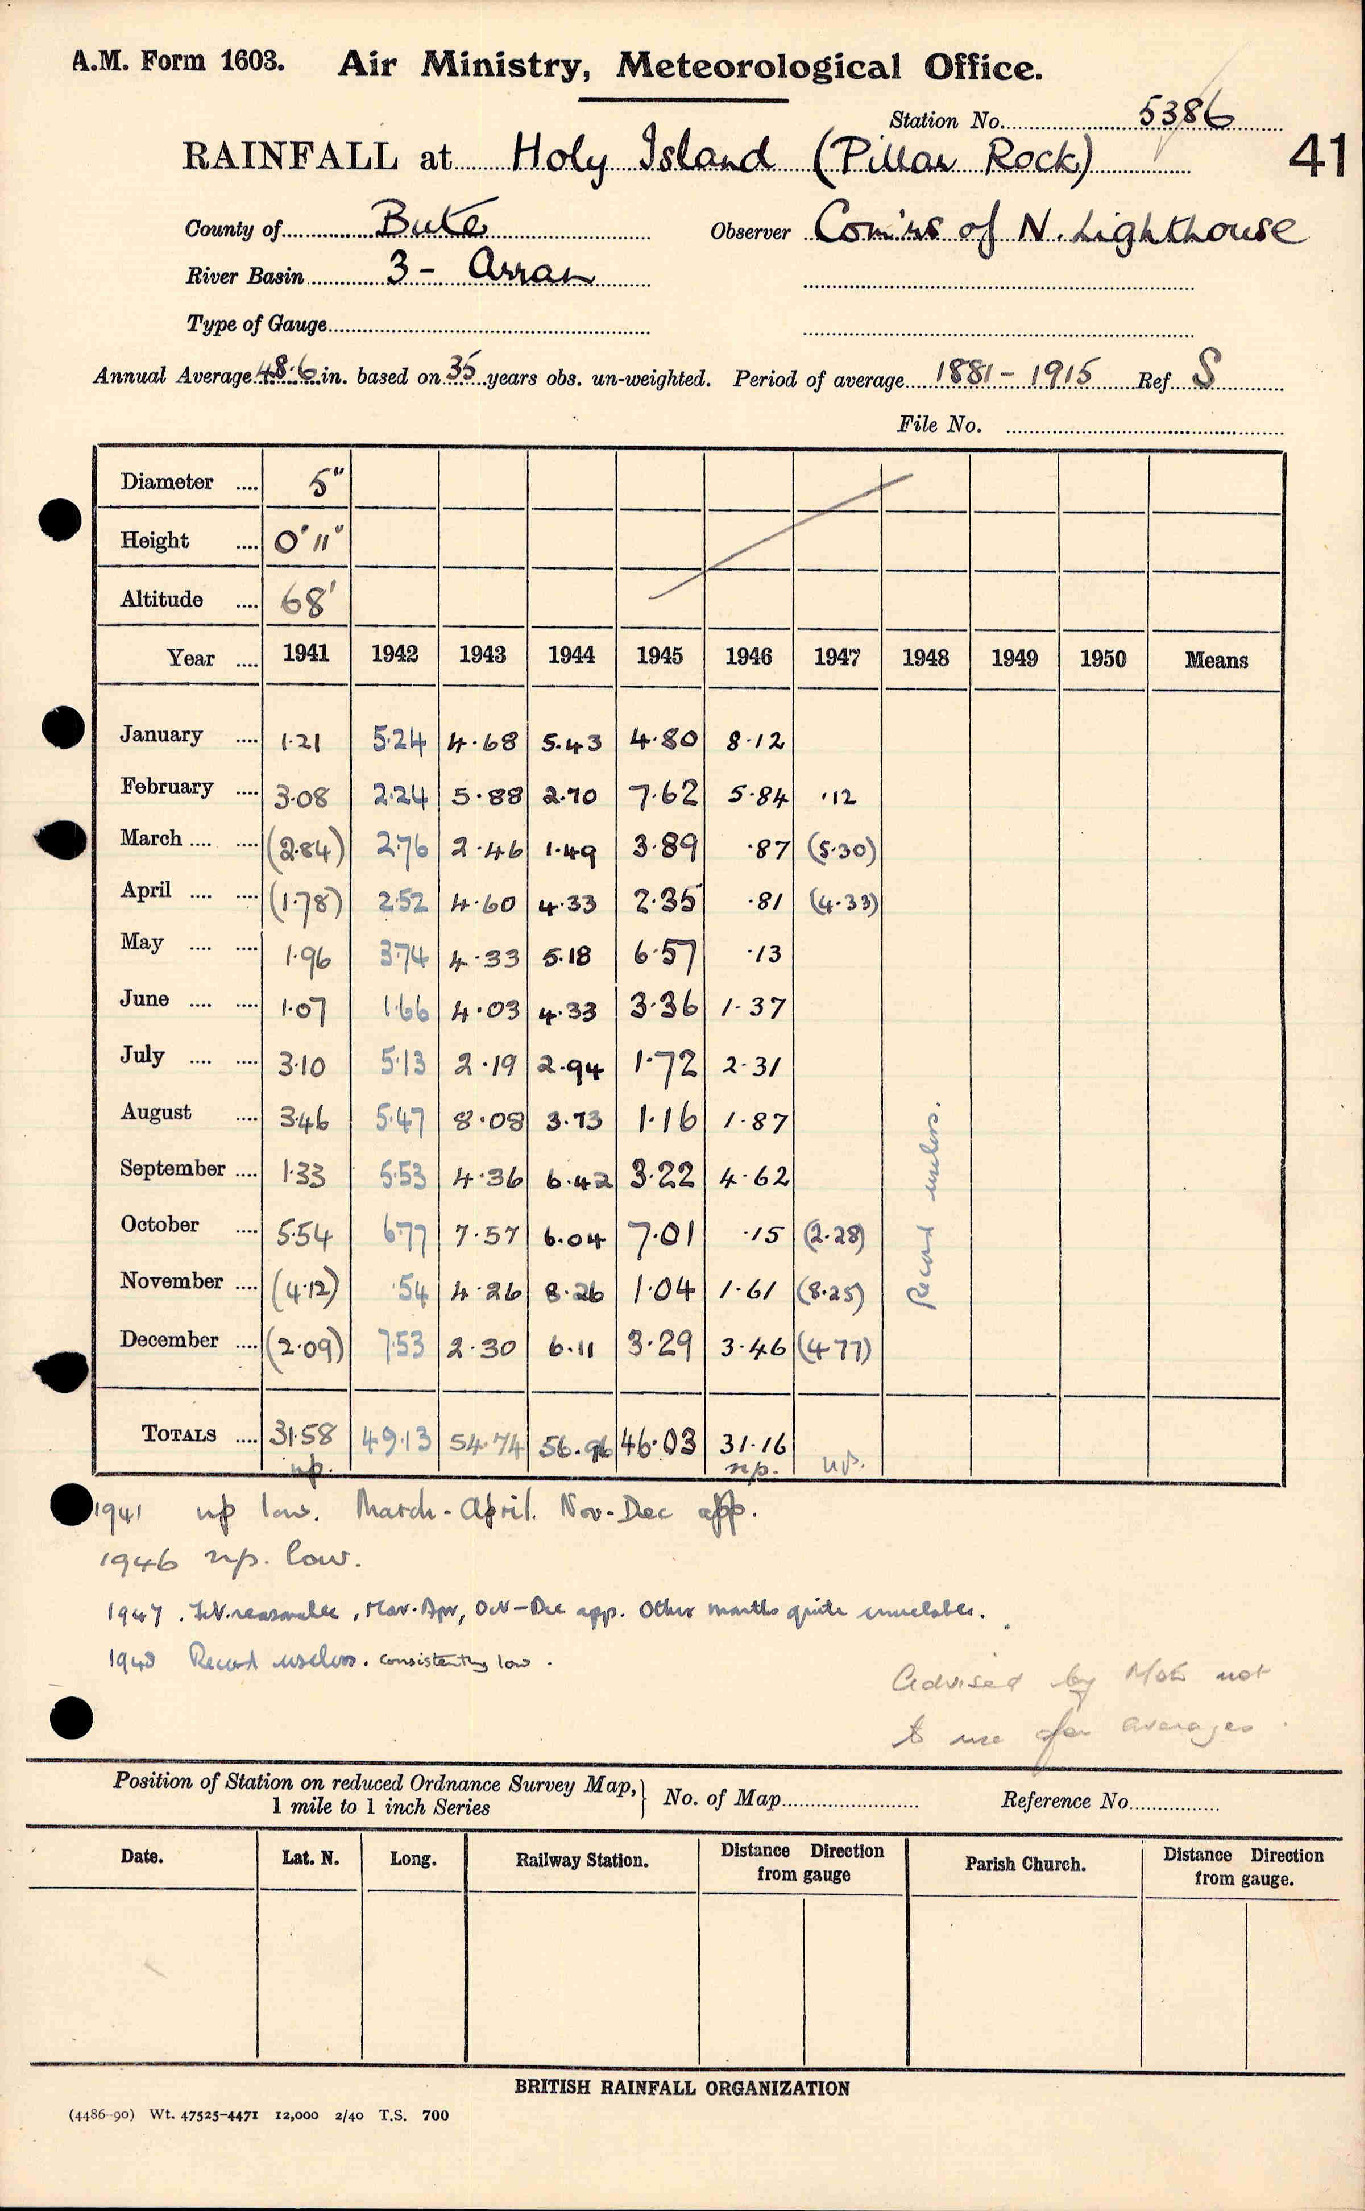 A.M. Form 1603. Air Ministry, Meteorological Office.
Station No. 5386
RAINFALL at Holy Island (Pillar Rock) 41
County of Bute Observer Com'rs of N. Lighthouse
River Basin 3 - Arran
Type of Gauge
Annual Average 48.6 in. based on 35 years obs. un-weighted. Period of average 1881 - 1915 Ref. S
File No.
Diameter .... 5"
Height .... 0' 11"
Altitude .... 68'
Year .... 1941 1942 1943 1944 1945 1946 1947 1948 1949 1950 Means
January .... 1.21 5.24 4.68 5.43 4.80 8.12
February .... 3.08 2.24 5.88 2.70 7.62 5.84 .12
March .... .... (2.84) 2.76 2.46 1.49 3.89 .87 (5.30)
April .... .... (1.78) 2.52 4.60 4.33 2.35 .81 (4.33)
May .... .... 1.96 3.74 4.33 5.18 6.57 .13
June .... .... 1.07 1.66 4.03 4.33 3.36 1.37
July .... .... 3.10 5.13 2.19 2.94 1.72 2.31
August .... 3.46 5.47 8.08 3.73 1.16 1.87
September .... 1.33 5.53 4.36 6.42 3.22 4.62
October .... 5.54 6.77 7.57 6.04 7.01 .15 (2.28)
November .... (4.12) .54 4.26 8.26 1.04 1.61 (8.25)
December .... (2.09) 7.53 2.30 6.11 3.29 3.46 (4.77)
Record useless.
TOTALS .... 31.58 49.13 54.74 56.96 46.03 31.16
np. np. np.
1941 np low. March-April. Nov-Dec app.
1946 np. low.
1947. Feb. reasonable, Mar-Apr, Oct-Dec app. Other months quite unreliable.
1948 Record useless. consistently low.
Advised by not
to use for averages
Position of Station on reduced Ordnance Survey Map, 1 mile to 1 inch Series } No. of Map Reference No.
Date. Lat. N. Long. Railway Station. Distance Direction from gauge Parish Church. Distance Direction from gauge.
BRITISH RAINFALL ORGANIZATION
(4486-90) Wt. 47525-4471 12,000 2/40 T.S. 700